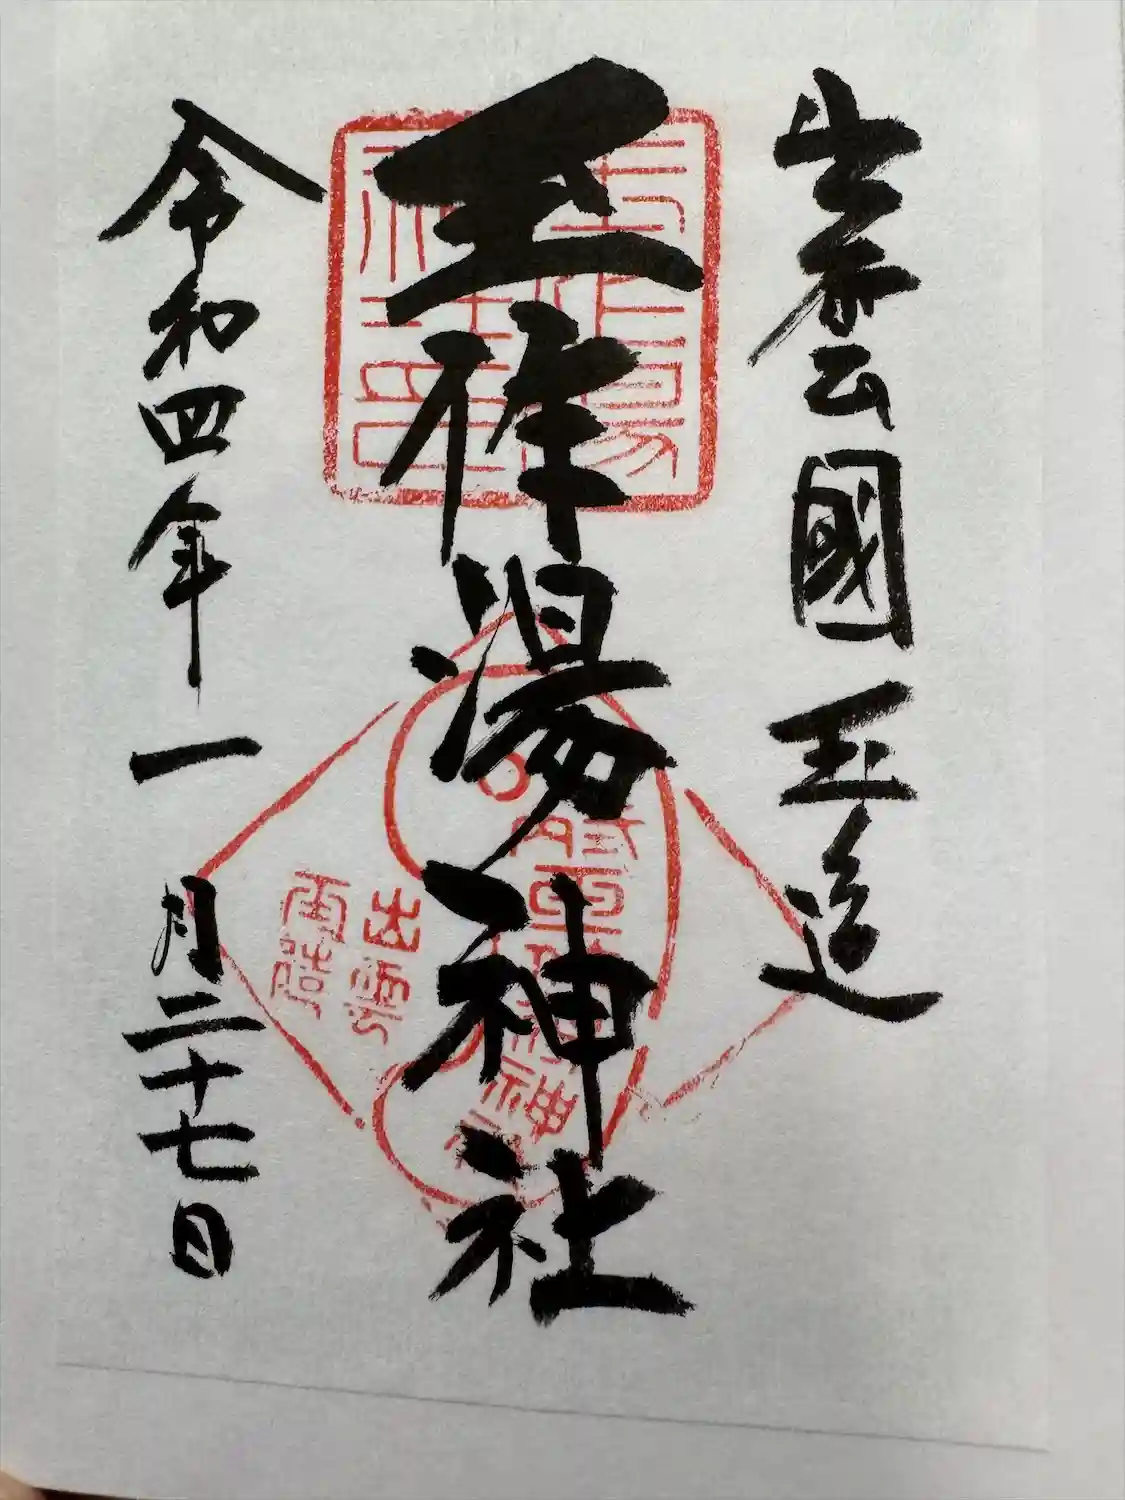 出雲國玉造
玉作湯神社
令和四年一月二十七日
玉作湯
神社印